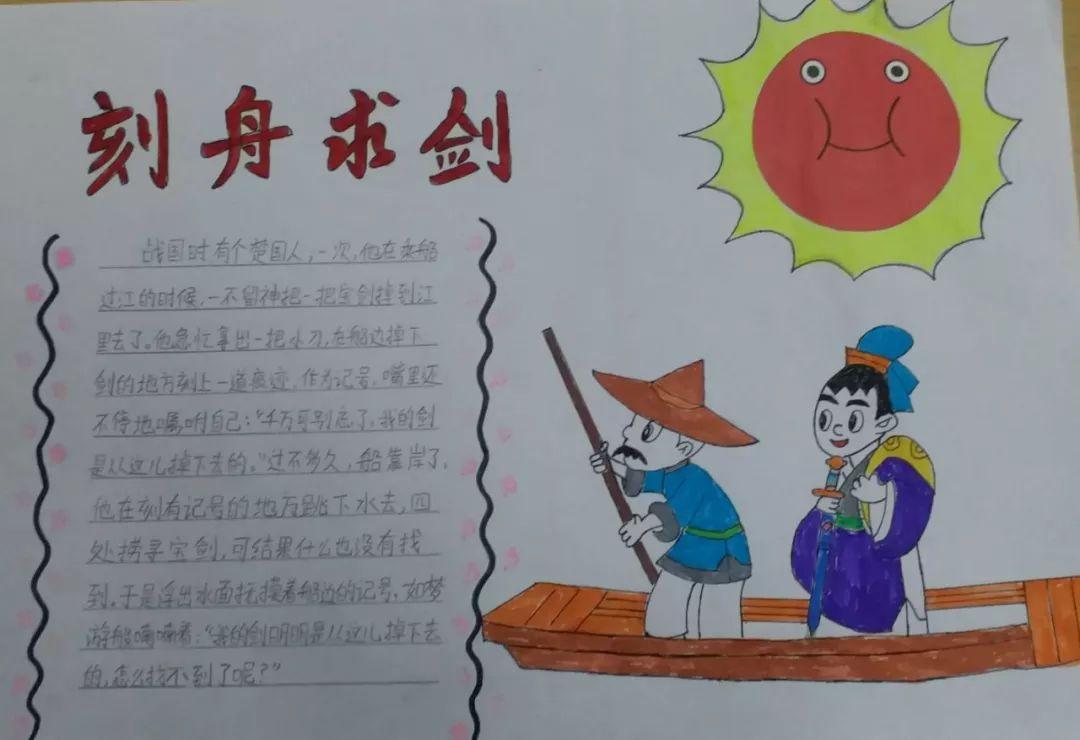 刻舟求剑
战国时有个楚国人，一次，他在乘船
过江的时候，一不留神把一把宝剑掉到江
里去了。他急忙拿出一把小刀，在船边掉下
剑的地方刻上一道痕迹，作为记号，嘴里还
不停地嘱咐自己：“千万可别忘了，我的剑
是从这儿掉下去的。”过不多久，船靠岸了，
他在刻有记号的地方跳下水去，四
处捞寻宝剑，可结果什么也没有找
到。于是浮出水面抚摸着船边的记号，如梦
游般喃喃着：“我的剑明明是从这儿掉下去
的，怎么找不到了呢？”